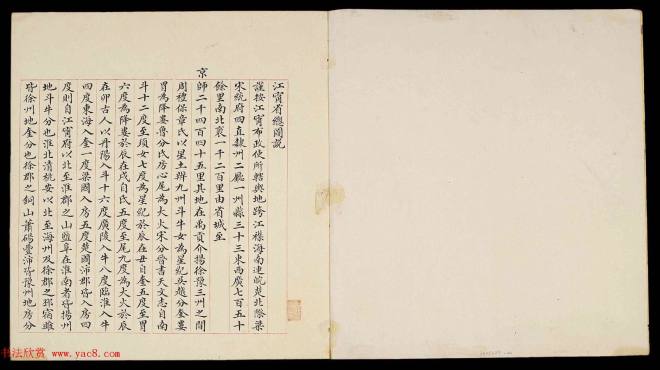 江甯省總圖說
謹按江甯布政使所轄輿地跨江襟海南連皖楚北際梁
宋統府四直隸州二廳一州縣三十三東西廣七百五十
餘里南北袤一千二百里由省城至
京
師二千四百四十五里其地在禹貢介揚徐豫三州之間
周禮保章氏以星土辨九州斗牛女為星紀吳越分奎婁
胃為降婁魯分氐房心尾為大火宋分晉書天文志自南
斗十二度至須女七度為星紀於辰在丑自奎五度至胃
六度為降婁於辰在戌自氐五度至尾九度為大火於辰
在卯古人以丹陽入斗十六度廣陵入牛八度臨淮入牛
四度東海入奎一度梁國入房五度楚國沛郡皆入房四
度則自江甯府以北至淮郡之山鹽阜在淮南者皆揚州
地斗牛分也淮北清桃安以北至海州及徐郡之邳宿睢
皆徐州地奎分也徐郡之銅山蕭碭豐沛皆豫州地房分
书法欣赏 www.yac8.com